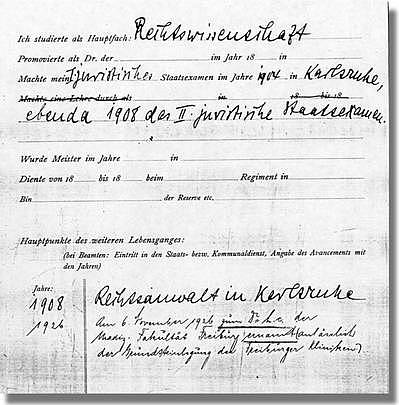 Ich studierte als Hauptfach: Rechtswissenschaft
Promovierte als Dr. der im Jahr 18 in
Machte mein I juristisches Staatsexamen im Jahre 1904 in Karlsruhe,
Machte eine Lehre durch als in 18 bis 18
ebenda 1908 das II. juristische Staatsexamen.
Wurde Meister im Jahre in
Diente von 18 bis 18 beim Regiment in
Bin der Reserve etc.
Hauptpunkte des weiteren Lebensganges:
(bei Beamten: Eintritt in den Staats- bezw. Kommunaldienst, Angabe des Avancements mit
den Jahren)
Jahre:
1908 Rechtsanwalt in Karlsruhe
1926 Am 6. November 1926 zum Dr. h. c. der
mediz. Fakultät Freiburg ernannt (anlässlich
der Grundsteinlegung der Freiburger Kliniken).